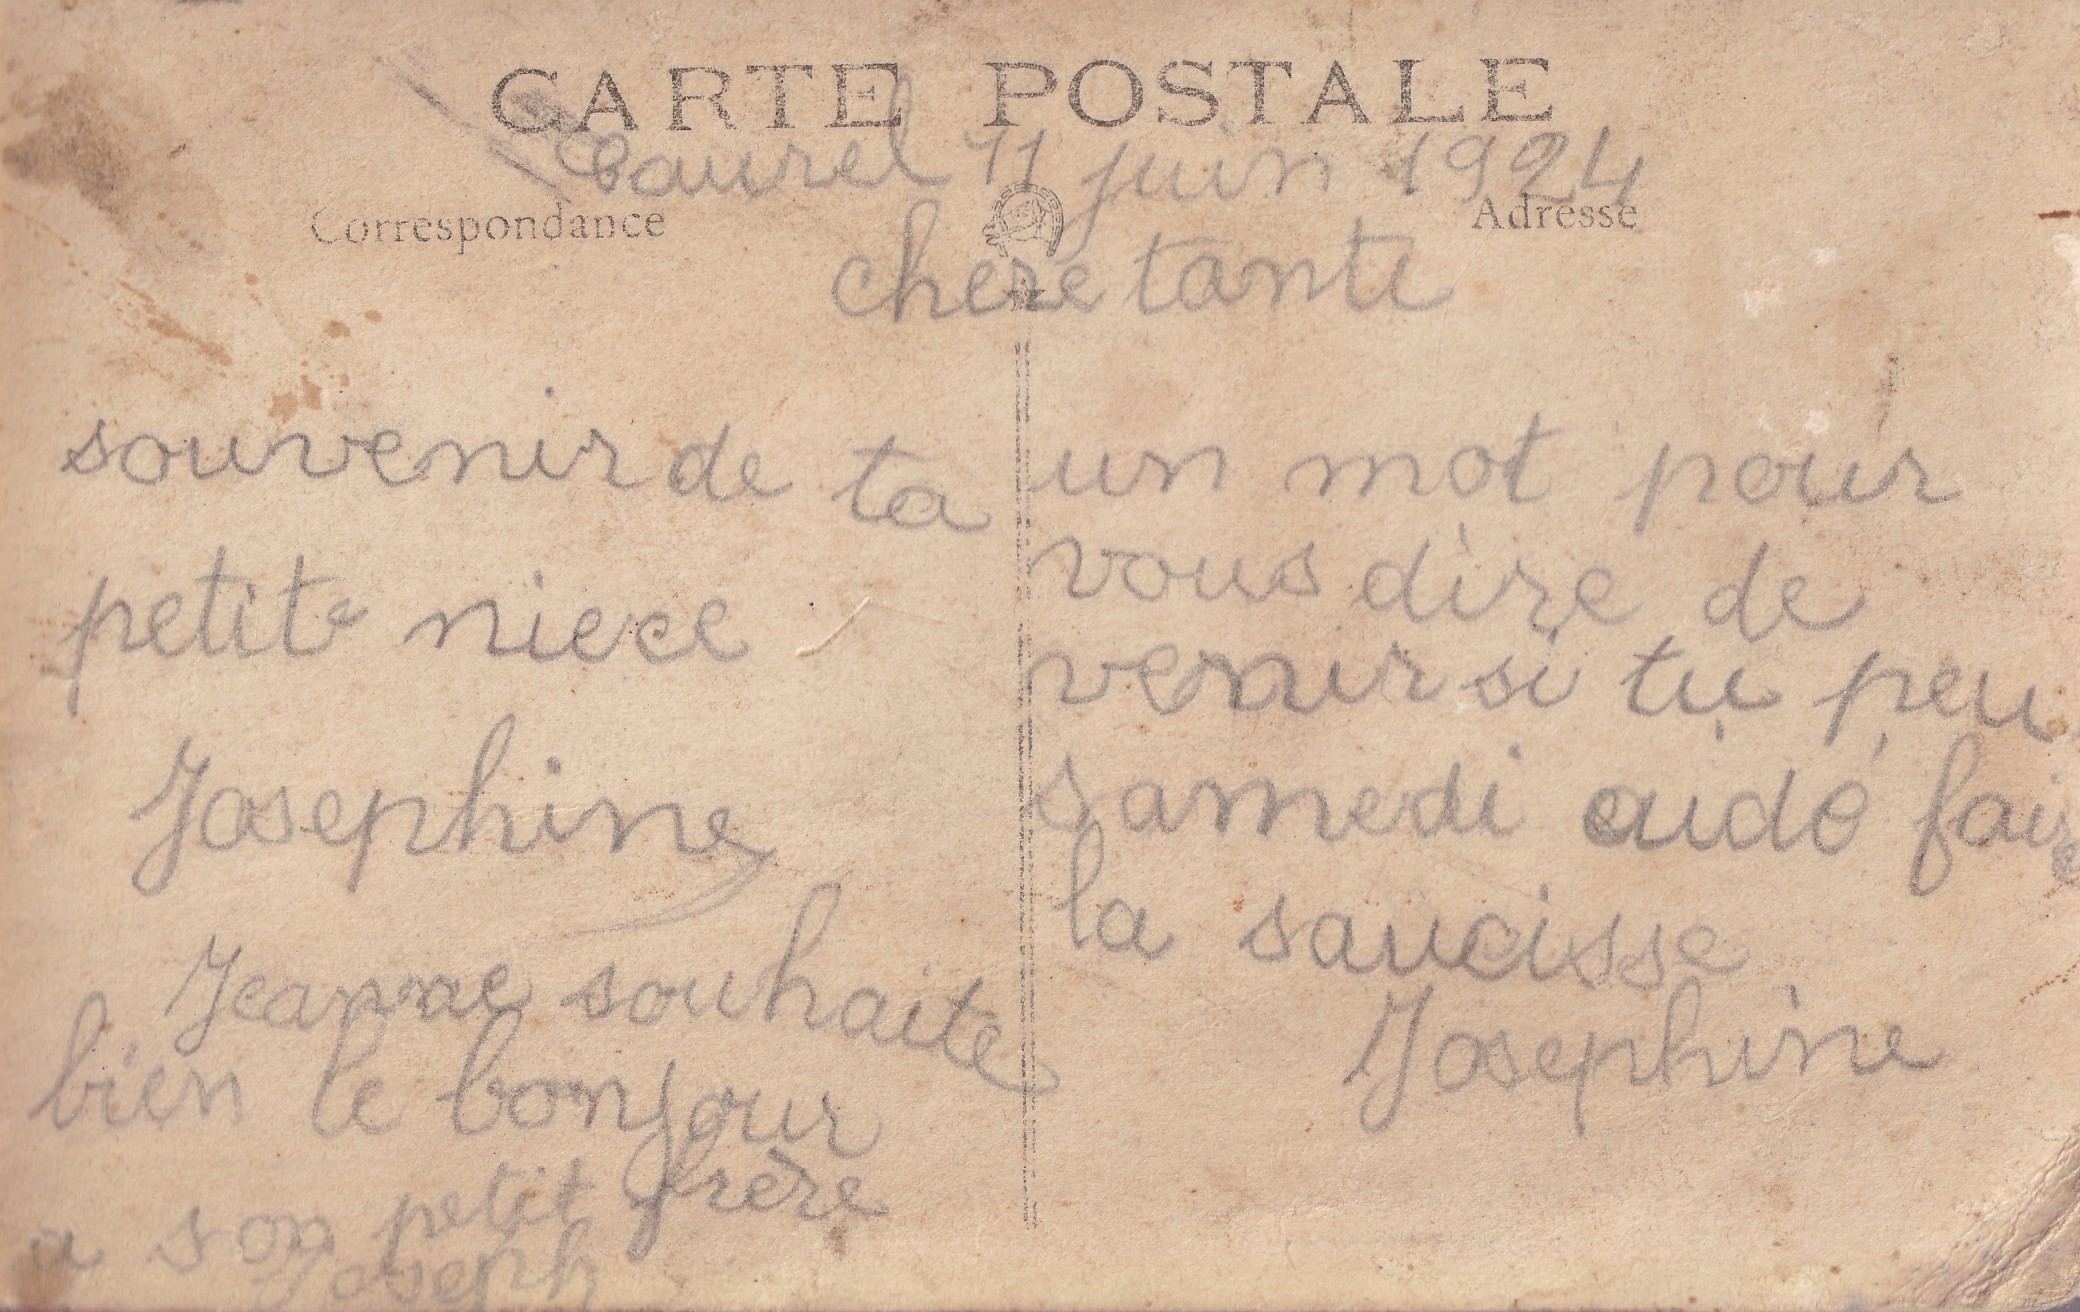 CARTE POSTALE
Caurel 11 juin 1924
Correspondance
Adresse
chere tante
souvenir de ta
petite niece
Josephine
Jeanne souhaite
bien le bonjour
a son petit frère
Joseph
un mot pour
vous dire de
venir si tu peu
samedi aidé faire
la saucisse
Josephine